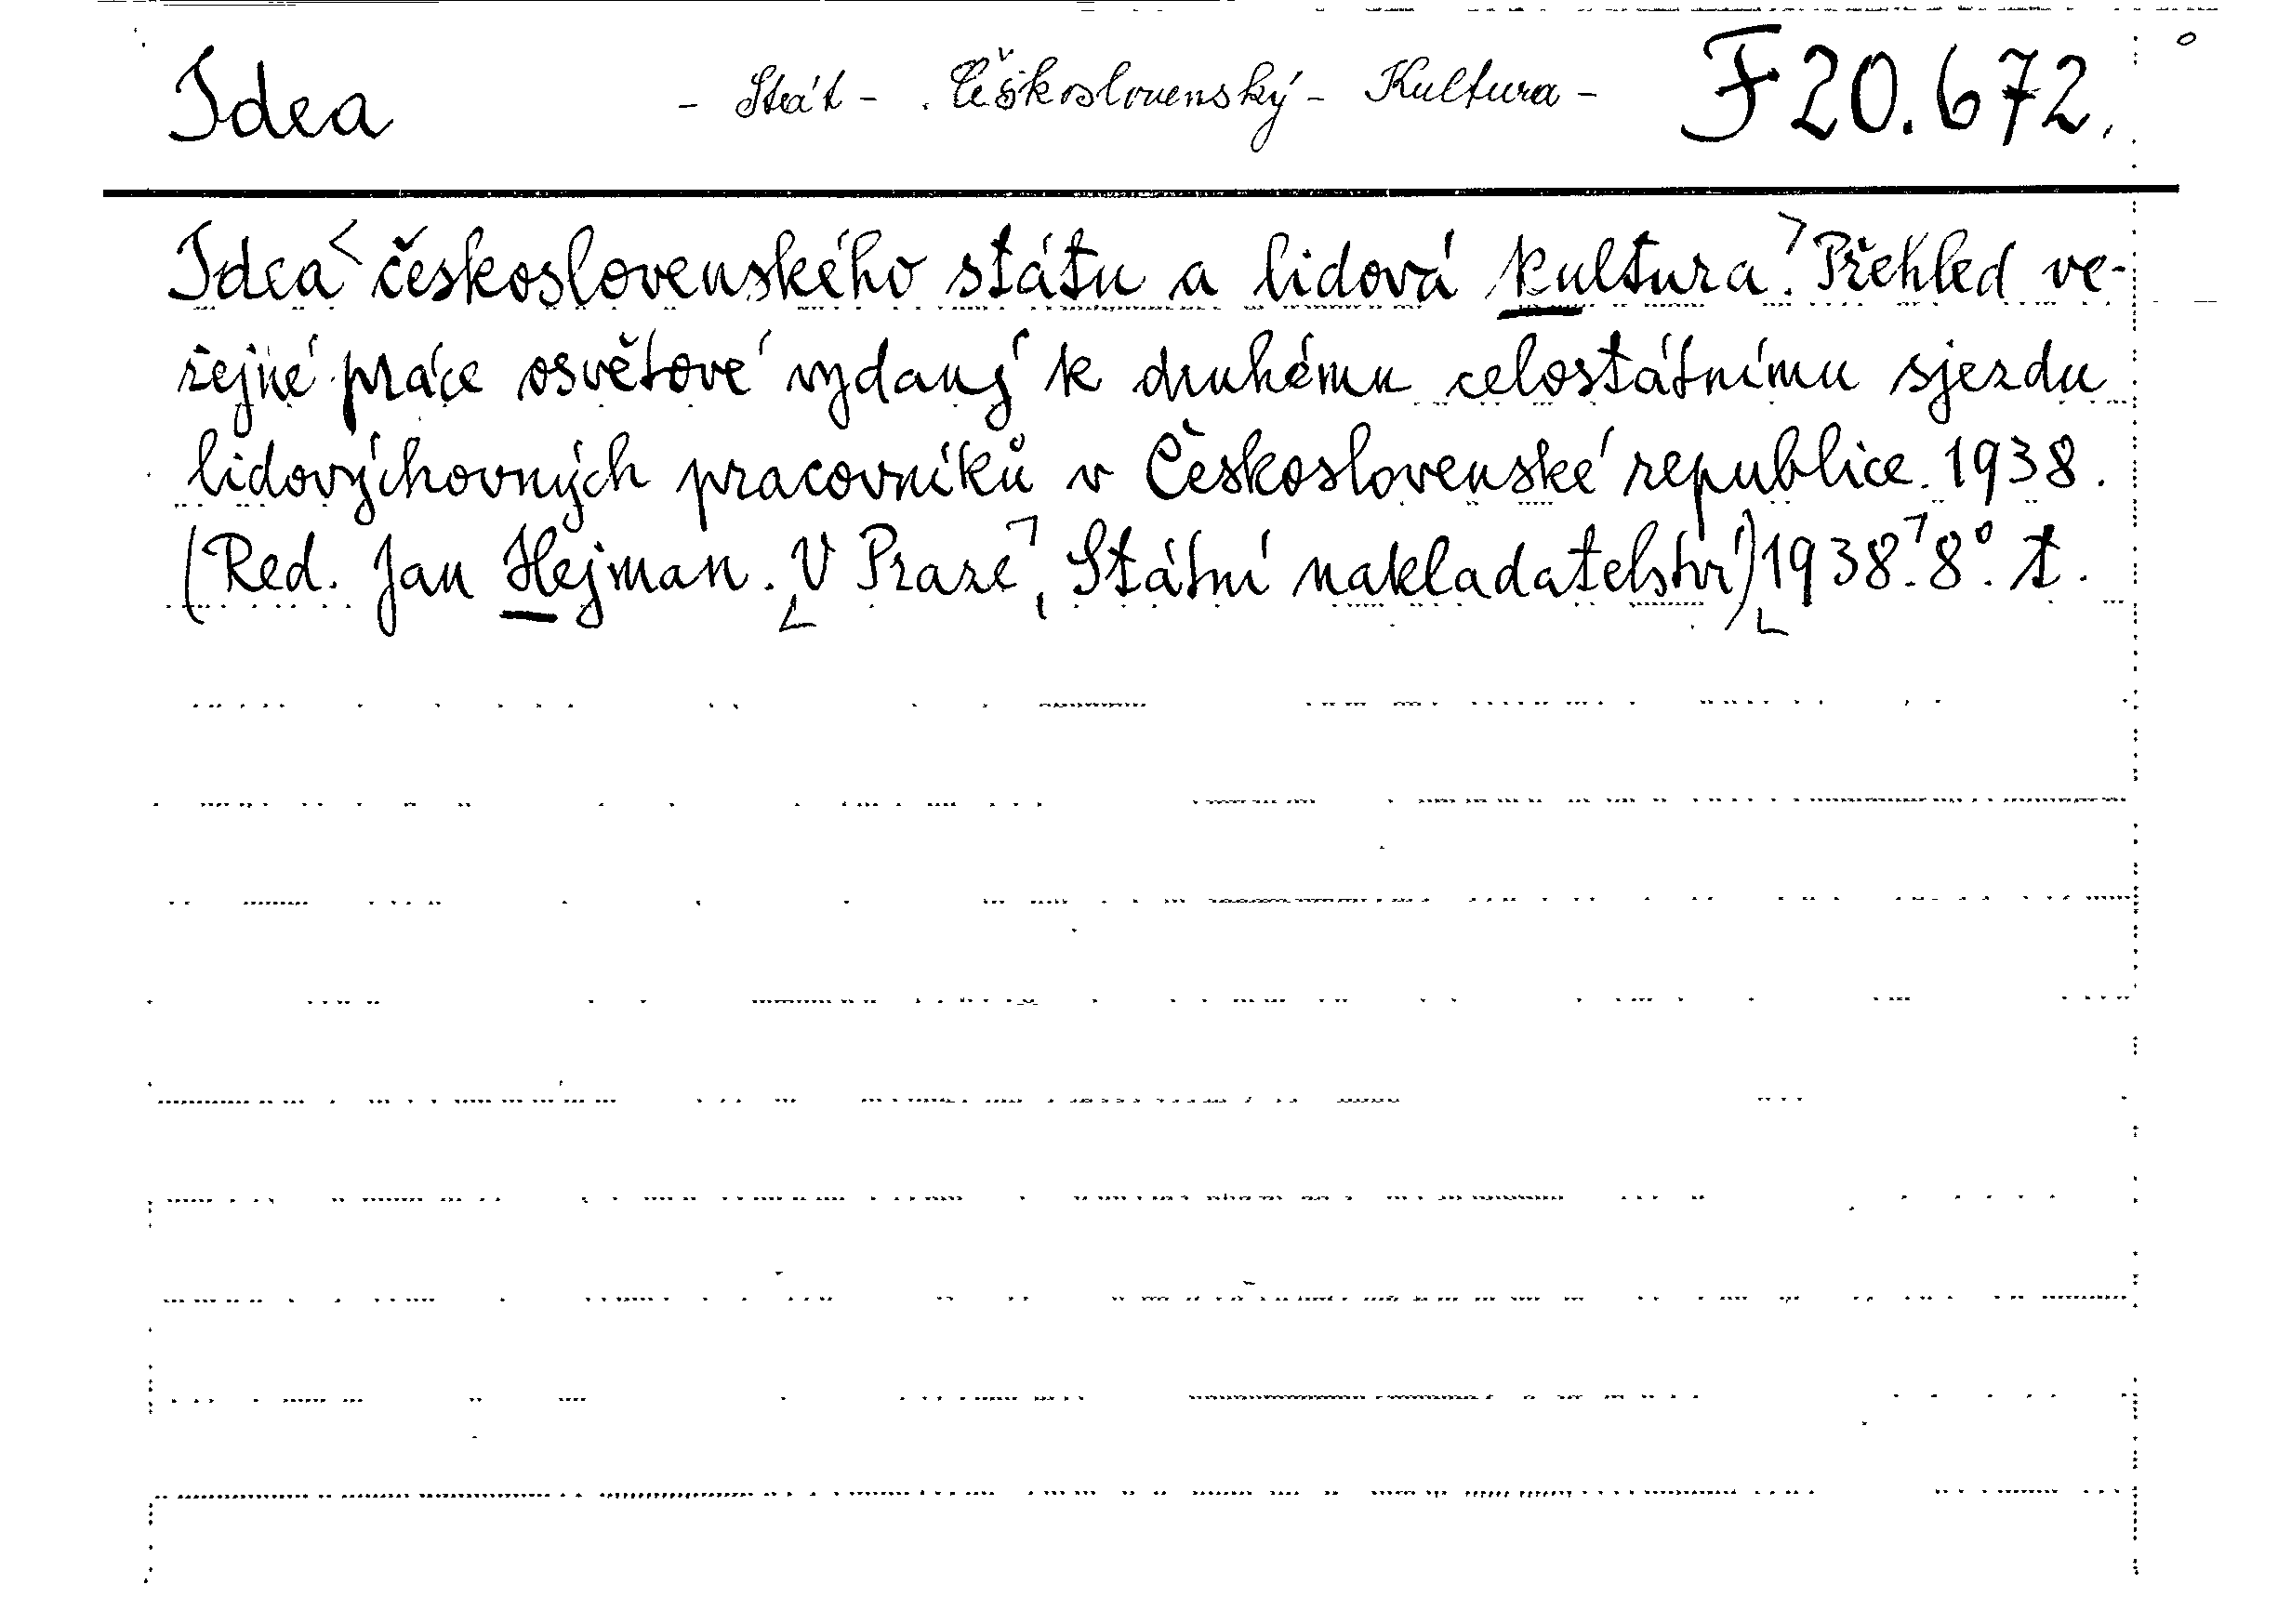 Idea - Stát - Československý - Kultura - F 20.672.
Idea československého státu a lidová kultura. Přehled ve-
řejné práce osvětové vydaný k druhému celostátnímu sjezdu
lidovýchovných pracovníků v Československé republice. 1938.
(Red. Jan Hejman. V Praze, Státní nakladatelství) 1938. 8°. t.